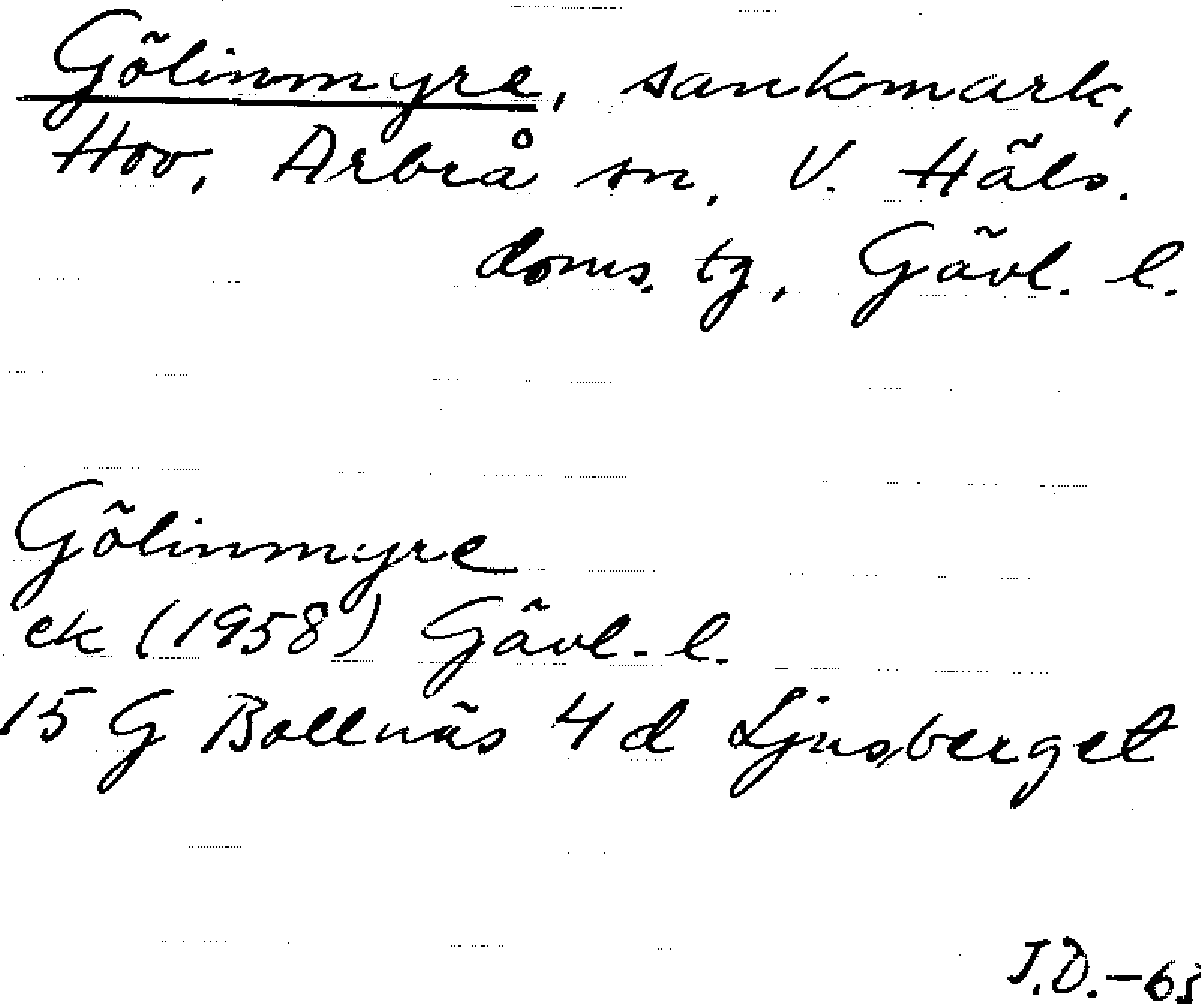 Gölinmyre, sankmark,
Hov, Arbrå sn, V. Häls.
doms. tg, Gävl. l.
Gölinmyre
ek (1958) Gävl. l.
15 G Bollnäs 4 d Ljusberget
J.D.-65